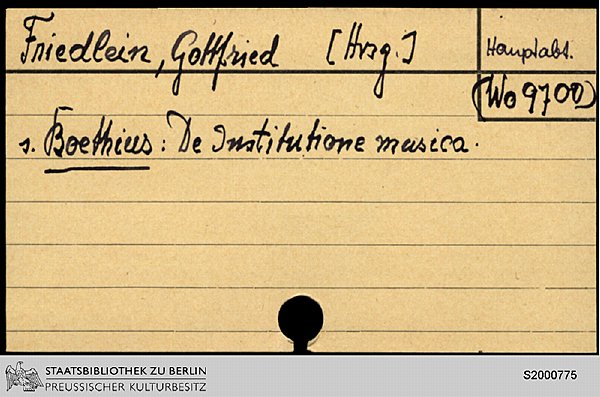 Friedlein, Gottfried [Hrsg.]
Hauptabt.
(Wo 9700)
s. Boethius: De Institutione musica.
STAATSBIBLIOTHEK ZU BERLIN
PREUSSISCHER KULTURBESITZ
S2000775